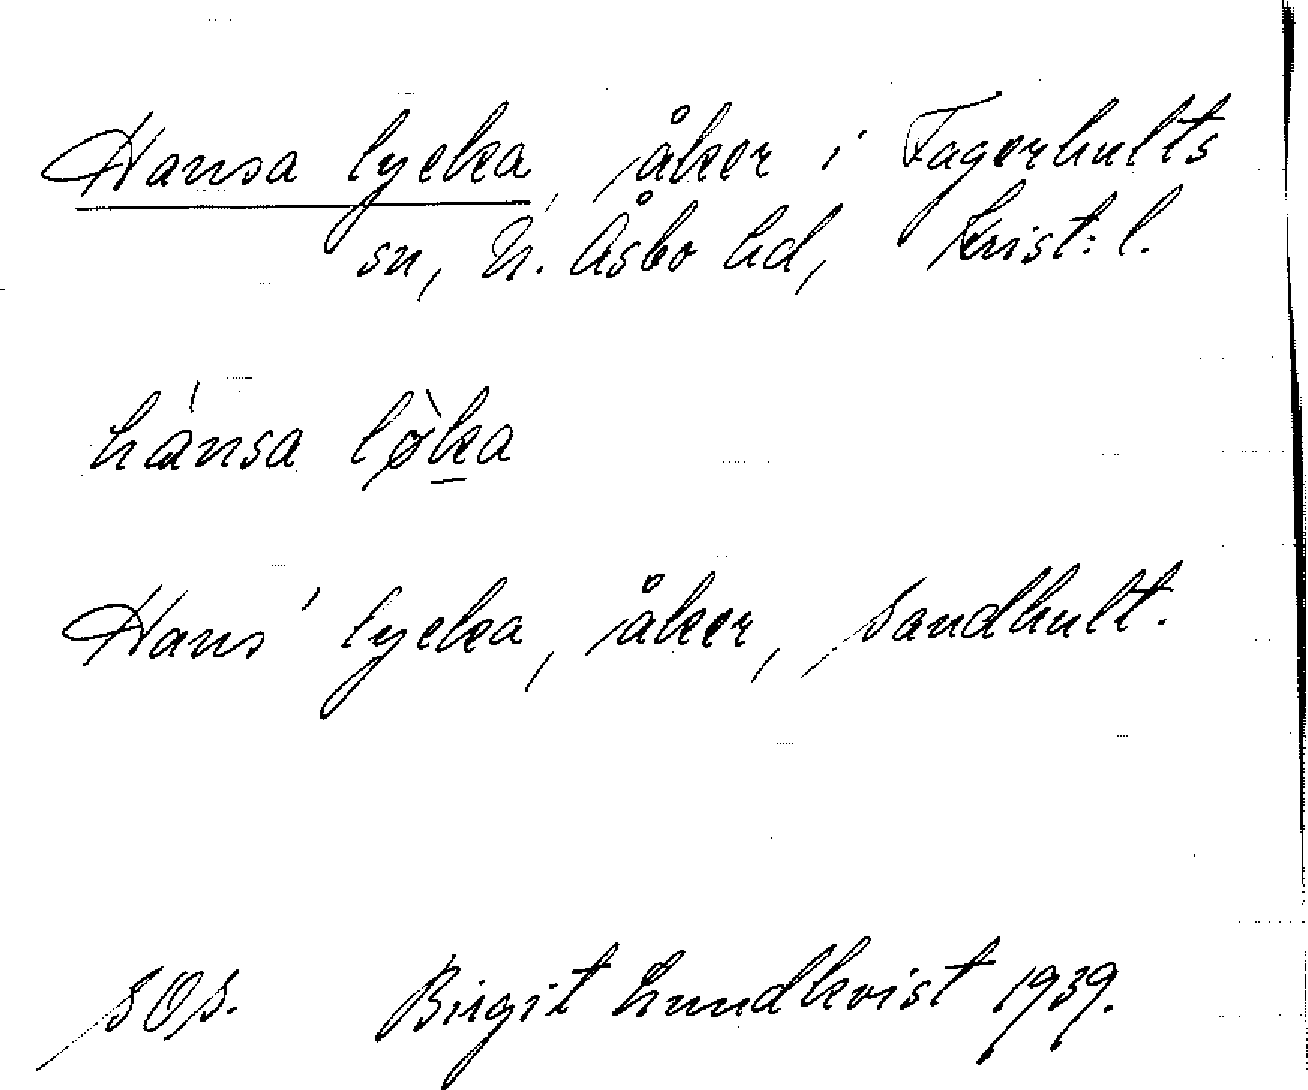 Hansa lycka, åker i Fagerhults
sn, N. Åsbo hd, Krist: l.
hánsa lø̀ḵa
Hans' lycka, åker, Sandhult.
SOS. Birgit Lundkvist 1939.